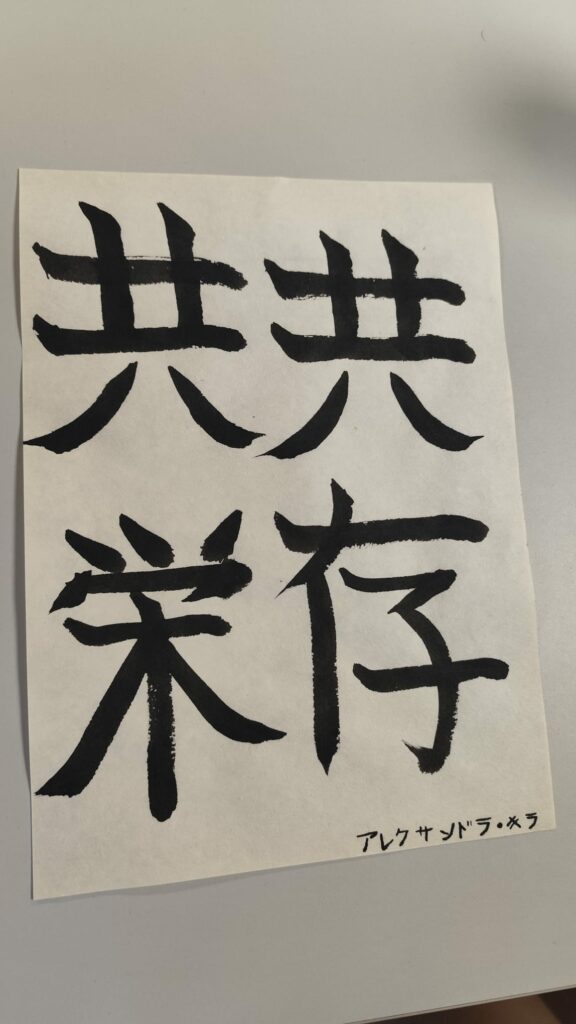 共存
共栄
アレクサンドラ・キラ